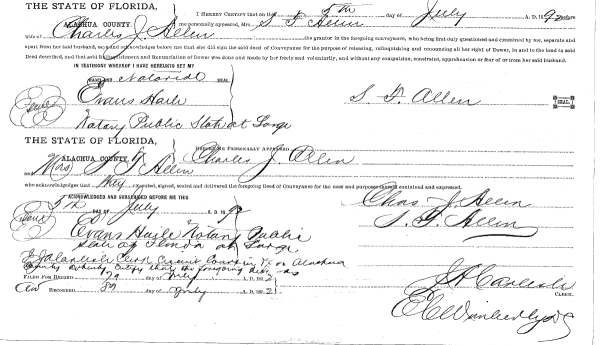 THE STATE OF FLORIDA,
ALACHUA COUNTY. I HEREBY CERTIFY that on this 5th day of July A. D. 189
me personally appeared, Mrs. S. F. Allen
wife of Charles J. Allen the grantor in the foregoing conveyance, who being first duly questioned and examined by me, separate and
apart from her said husband, and acknowledged before me that she did sign the said deed of Conveyance for the purpose of releasing, relinquishing and renouncing all her right of Dower, in and to the land in said
Deed described, and that said Relinquishment and Renunciation of Dower was done and made by her freely and voluntarily, and without any compulsion, constraint, apprehension or fear of or from her said husband.
IN TESTIMONY WHEREOF I HAVE HEREUNTO SET MY
HAND AND Notarial SEAL
Evans Haile
S. F. Allen SEAL.
Notary Public State at Large
THE STATE OF FLORIDA,
ALACHUA COUNTY. BEFORE ME PERSONALLY APPEARED Charles J. Allen
Mrs S F Allen
who acknowledges that they executed, signed, sealed and delivered the foregoing Deed of Conveyance for the uses and purposes therein contained and expressed.
ACKNOWLEDGED AND SUBSCRIBED BEFORE ME THIS
5th DAY OF July A. D. 18
Chas J Allen
S. F. Allen
Evans Haile Notary Public
State of Florida at Large
Clerk Circuit Court in & for Alachua
County hereby Certify that the foregoing
FILED FOR RECORD day of July A. D. 189
RECORDED day of July A. D. 189
CLERK.